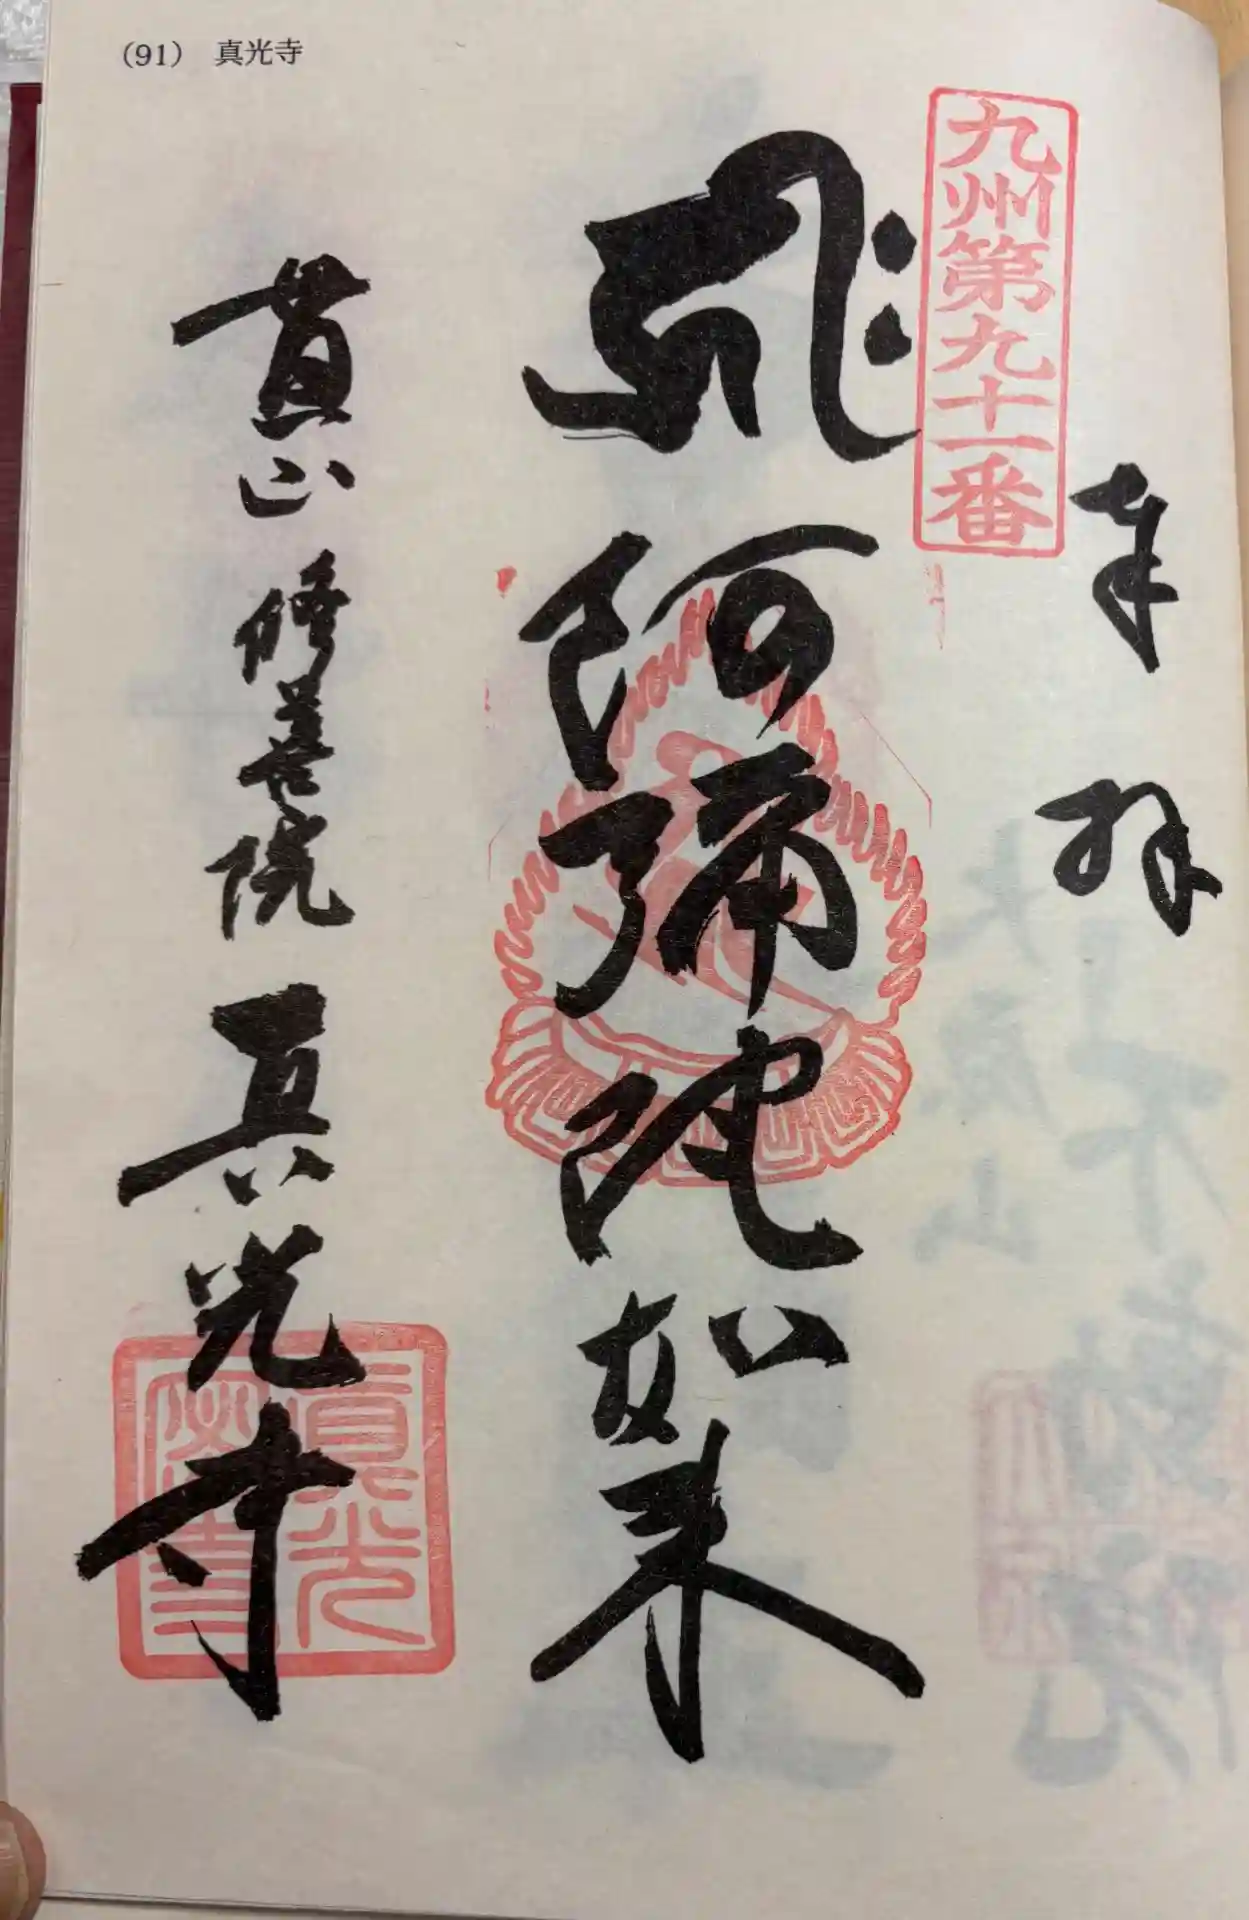 (91) 真光寺
九州第九十一番
奉拝
阿弥陀如来
黄山 修善院 真光寺
真光
密寺